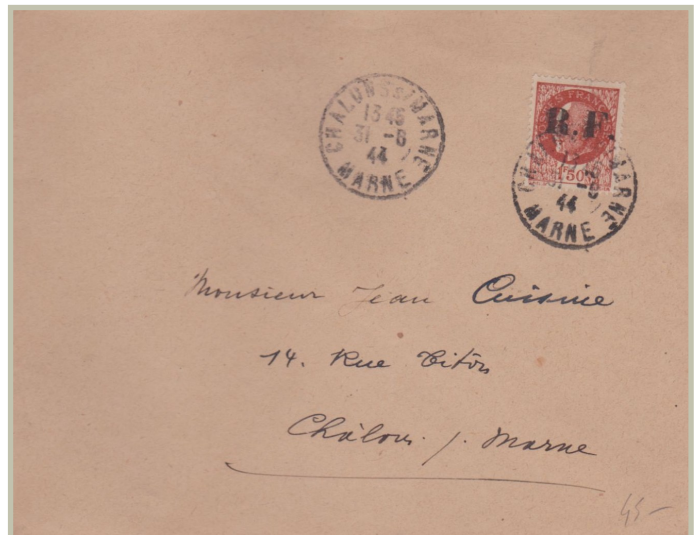 CHALONS S/ MARNE
13 45
31 -8
44
MARNE
R.F.
1F50
44
MARNE
Monsieur Jean Cuisine
14. Rue Titon
Châlons s/ Marne
45 -